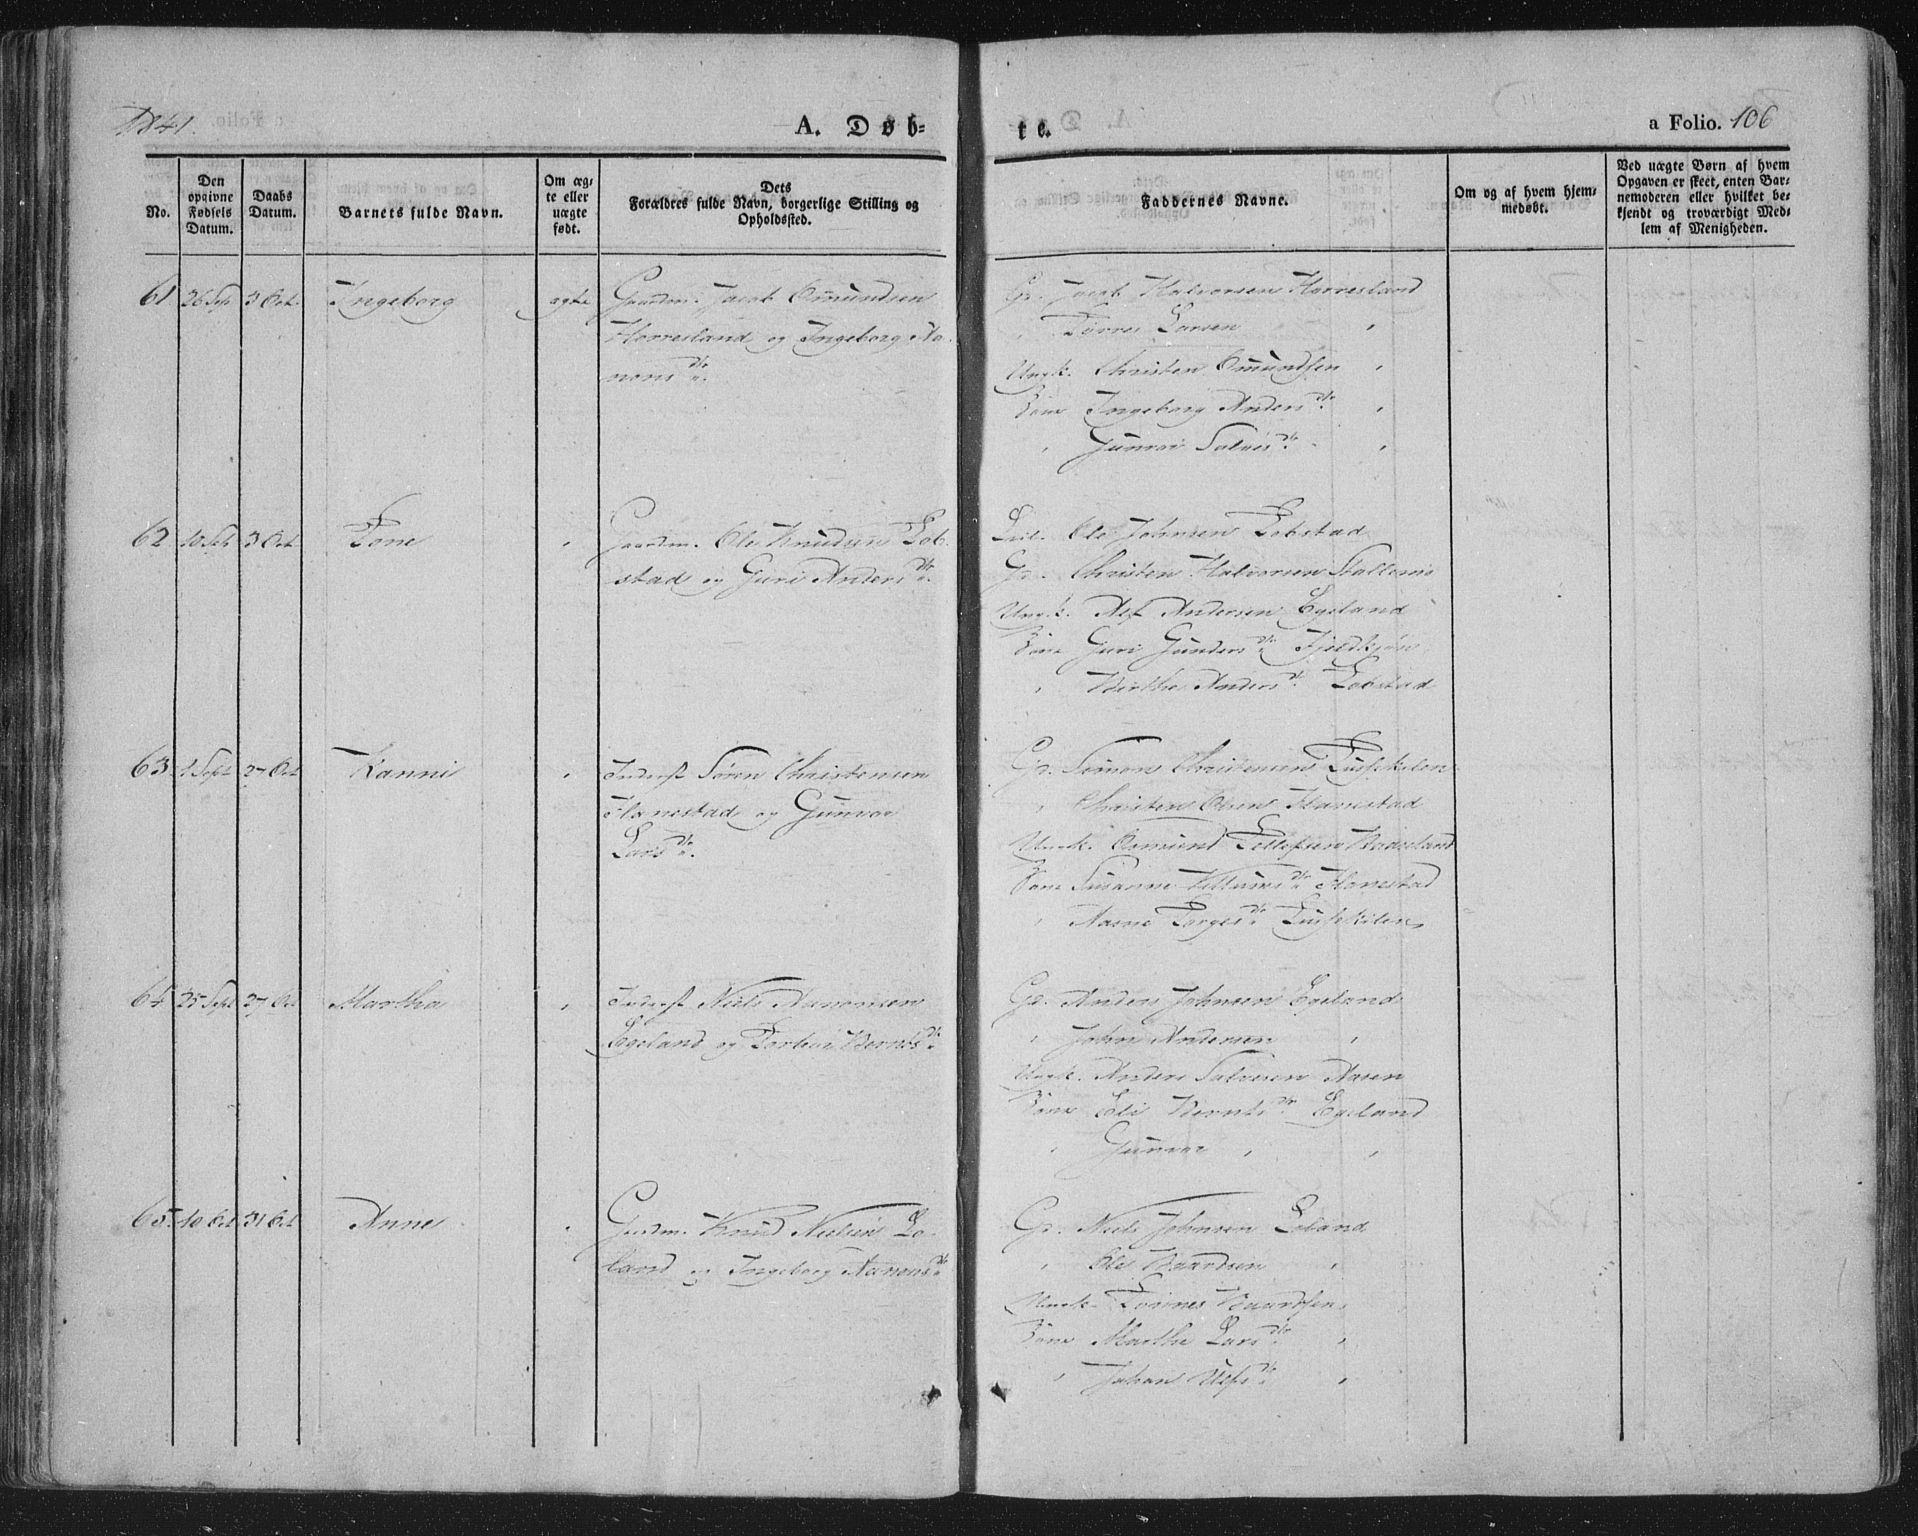 1841.
A. Døb-
te.
a Folio. 106
No.
Den opgivne Fødsels Datum.
Daabs Datum.
Barnets fulde Navn.
Om ægte eller uægte født.
Dets Forældres fulde Navn, borgerlige Stilling og Opholdssted.
Faddernes Navne.
Om og af hvem hjemmedøbt.
Ved uægte Børn af hvem Opgaven er skeet, enten Barnemoderen eller hvilket bekjendt og troværdigt Medlem af Menigheden.
61 26 Sep 3 Oct. Ingeborg ægte Gaardm. Jacob Omundsen
Horresland og Ingeborg Aa-
nons dtr.
Gr. Jacob Halvorsen Horresland
" Torres Larsen "
Ungk. Christen Omundsen "
Kone Ingeborg Anders dtr. "
" Gunvor Salves dtr. "
62 10 Sept 3 Oct Tone " Gaardm. Ole Knudsen Tob-
stad og Guri Anders dtr.
Ole Johnsen Tobstad
Gr. Christen Halvorsen
Ungk. Alf Andersen Egeland
Kone Guri Gunders dtr
" Berthe Anders dtr. Tobstad
63 1 Sept 27 Oct Kanni " Inderst Søren Christensen
Hanestad og Gunvor
Lars dtr.
Gr. Simon Christensen
" Christen Olsen Hanestad
Ungk. Osmund Tellefsen
Kone Susanne dtr Hanestad
" Aasne Torges dtr
64 25 Sept 27 Oct Martha " Inderst Niels Aanonsen
Egeland og Torbor Bernts dtr.
Gr. Anders Johnsen Egeland
" John Andersen "
Ungk. Anders Salvesen Aasen
Kone Eli Bernts dtr Egeland
" Gunvor " "
65. 10 Oct 31 Oct Anne " Gaardm. Knud Nielsen Lo-
land og Ingeborg Aanons dtr
Gr. Niels Johnsen Loland
" Ole Baardsen "
Ungk. Tønnes Baardsen "
Kone Marthe Lars dtr "
" Johan dtr "